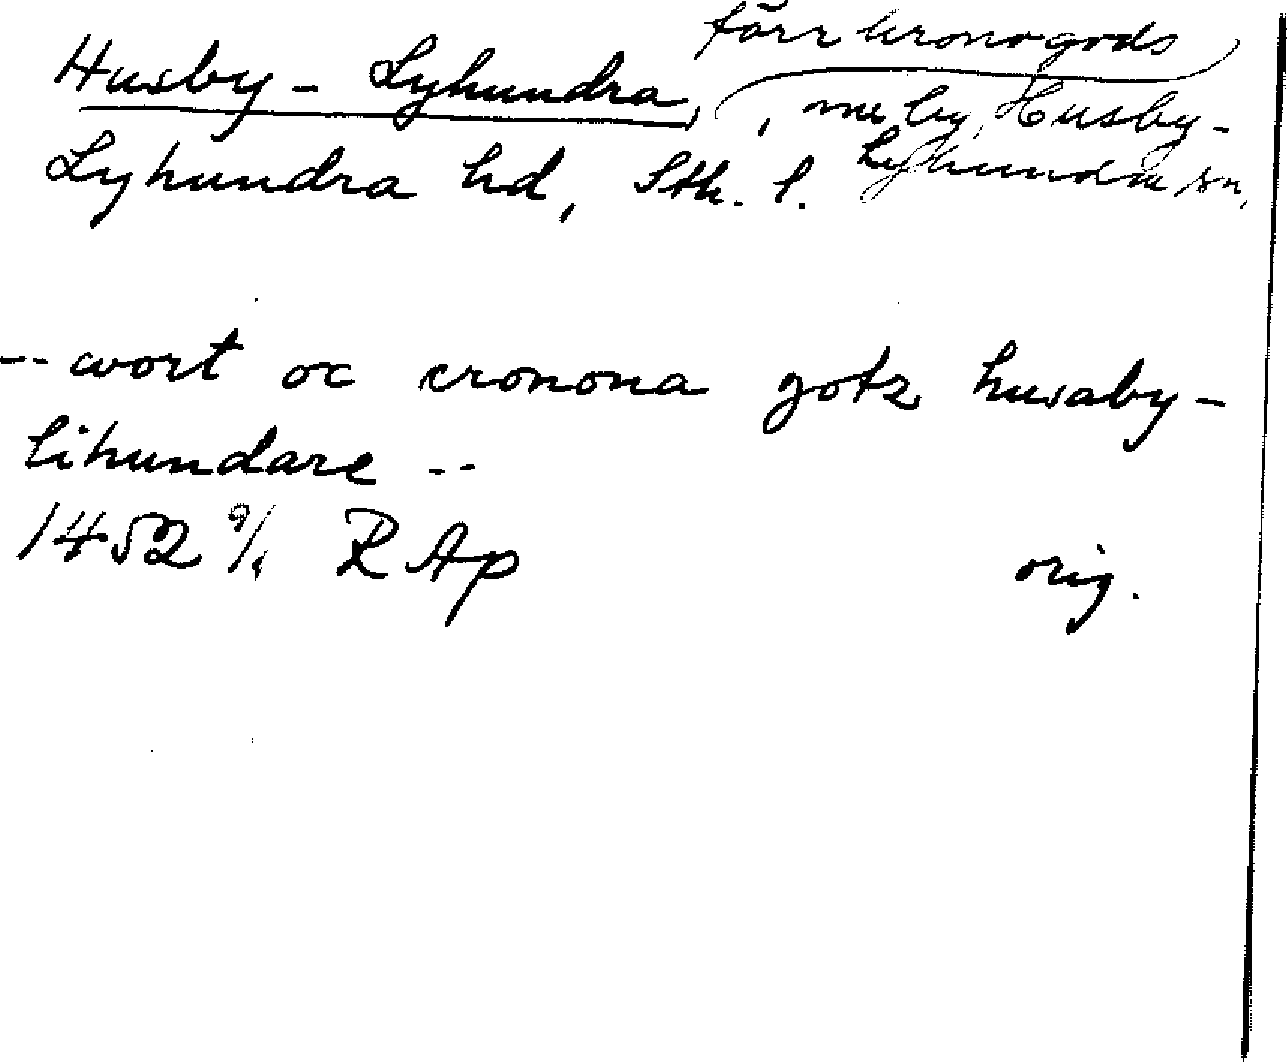 förr kronogods
Husby - Lyhundra, , nu by, Husby-
Lyhundra hd, Sth. l. Lyhundra sn,
-- wort oc cronona gotz husaby-
lihundare --
1452 9/1 RAp orig.